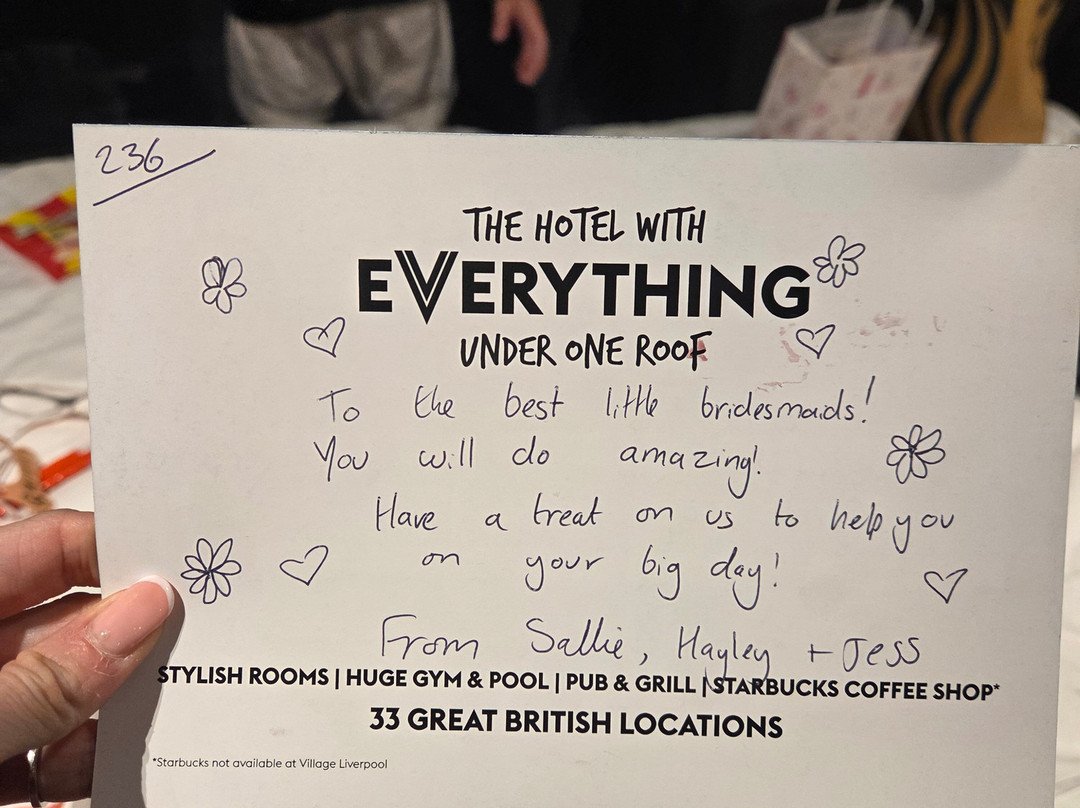 236
THE HOTEL WITH
EVERYTHING
UNDER ONE ROOF
To the best little bridesmaids!
You will do amazing!
Have a treat on us to help you
on your big day!
From Sallie, Hayley + Jess
STYLISH ROOMS | HUGE GYM & POOL | PUB & GRILL | STARBUCKS COFFEE SHOP*
33 GREAT BRITISH LOCATIONS
*Starbucks not available at Village Liverpool